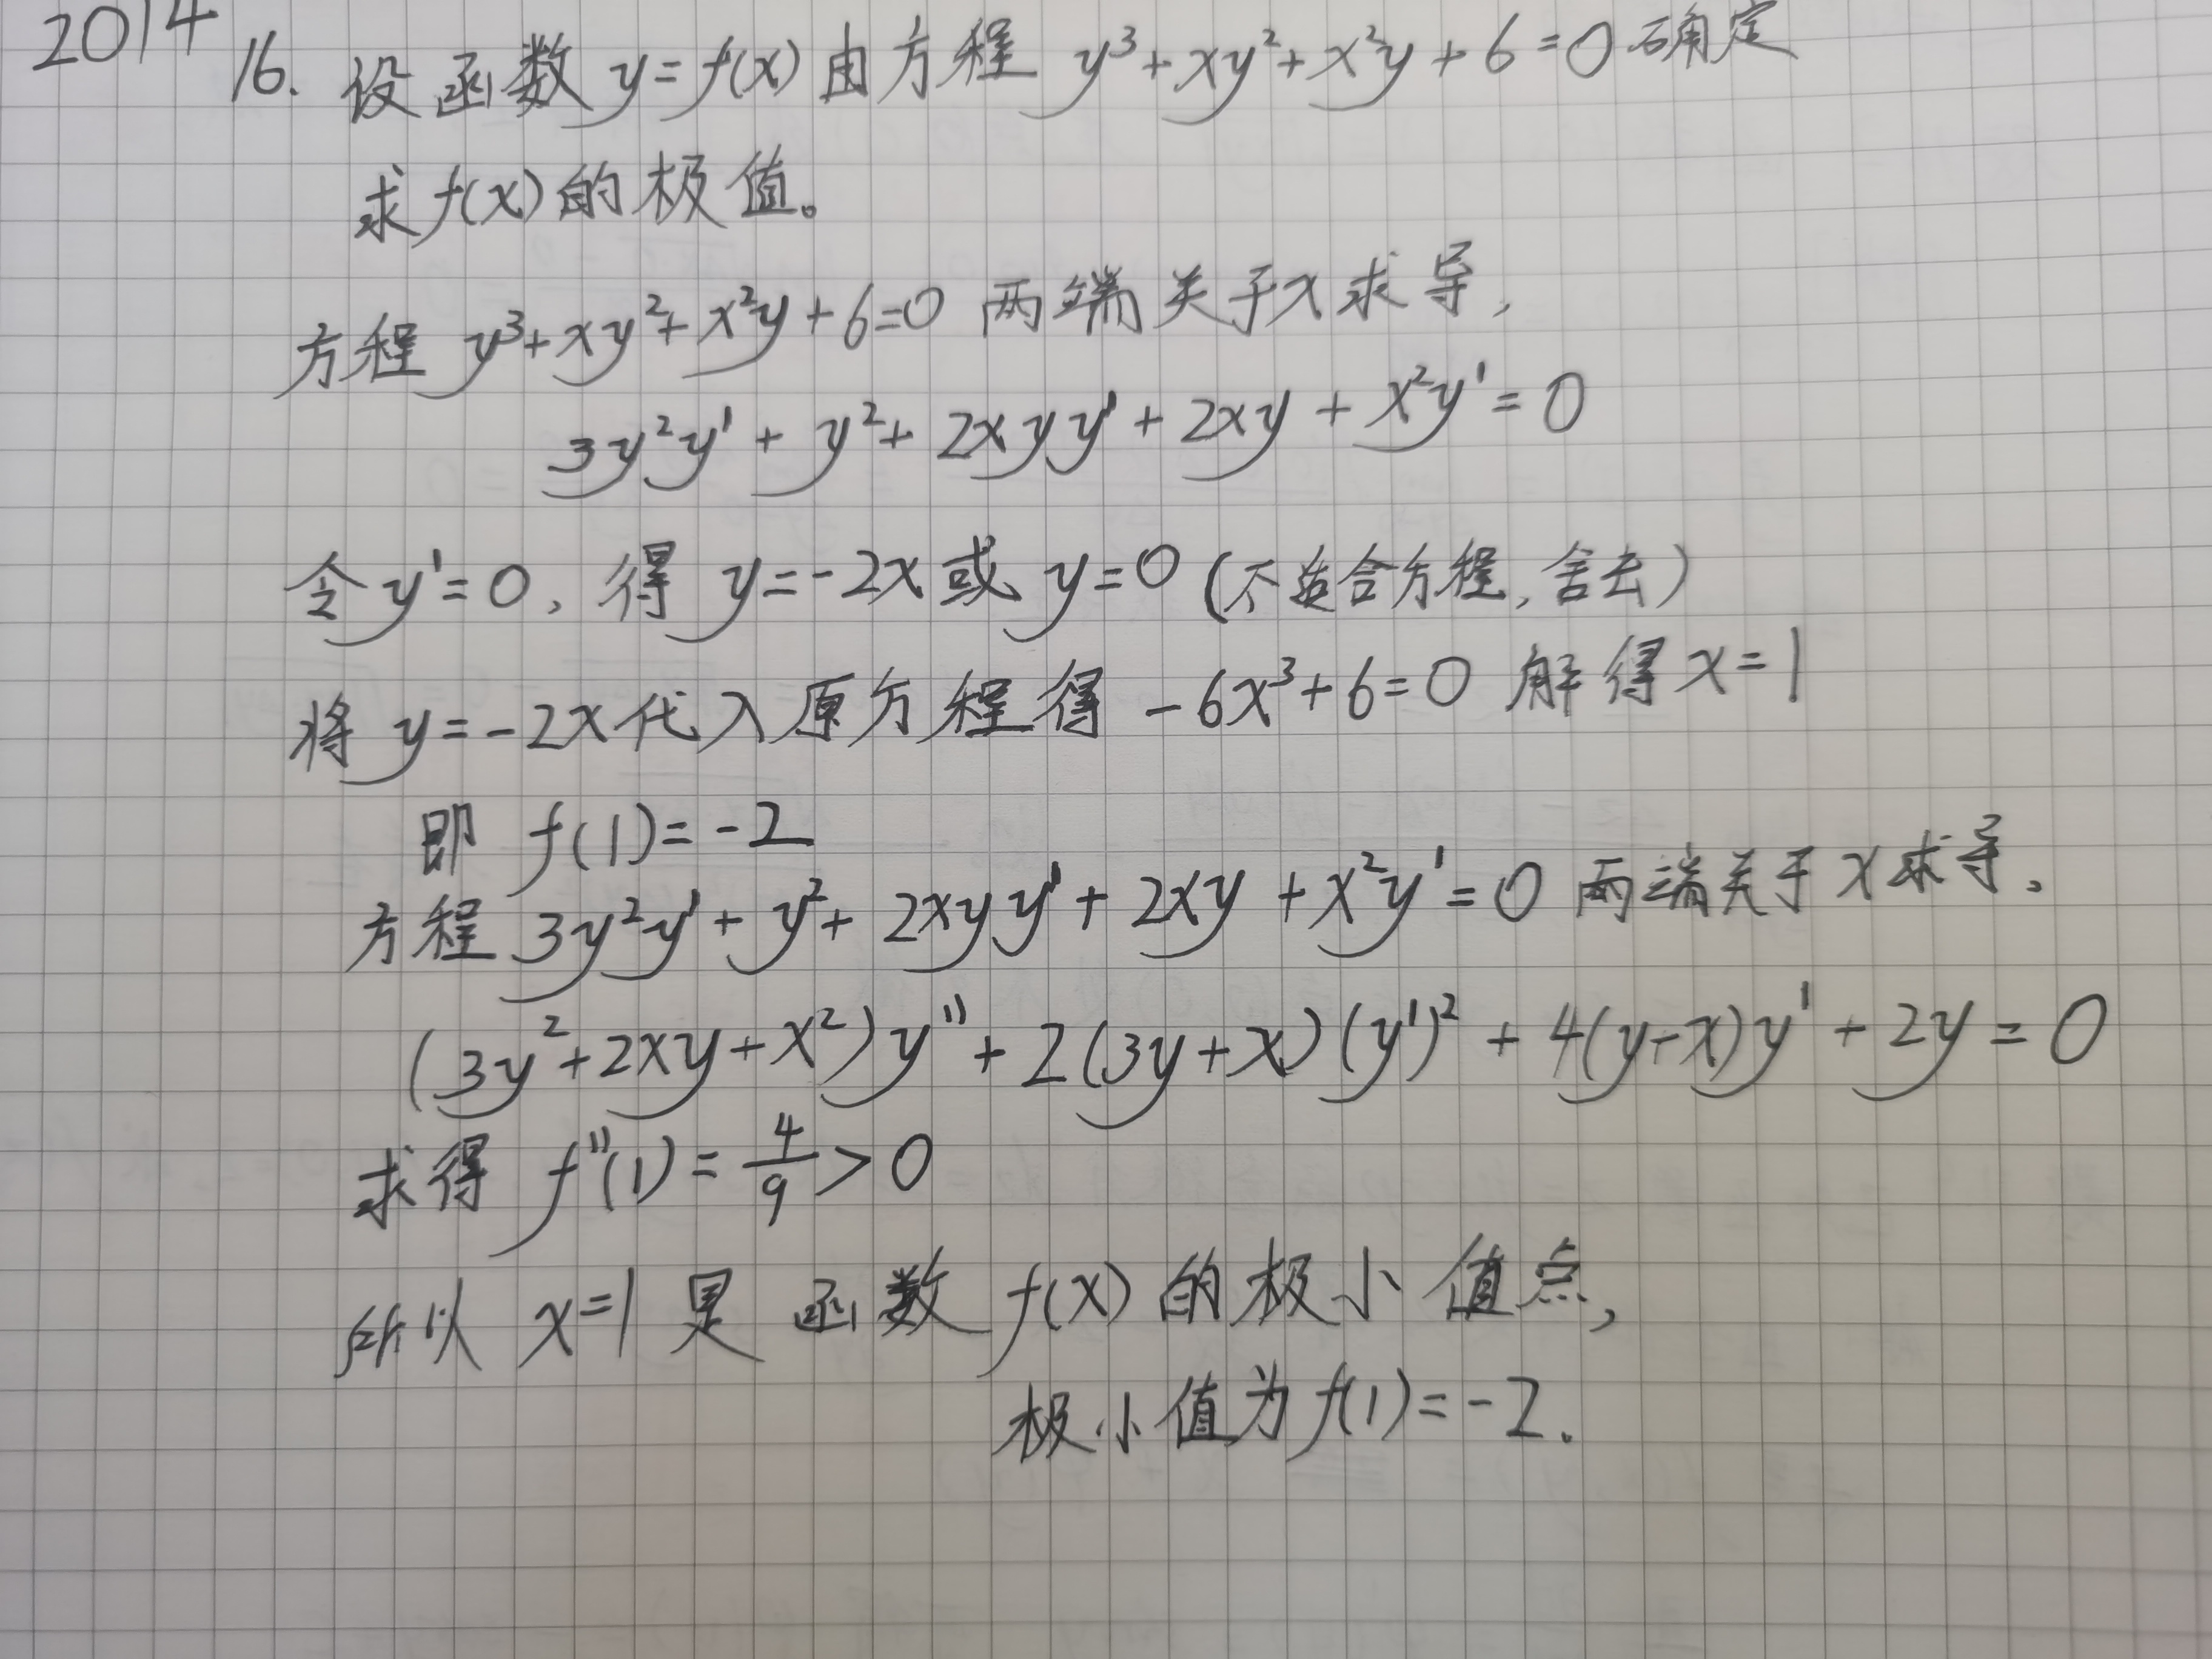 2014
16. 设函数 y=f(x) 由方程 y³+xy²+x²y+6=0 确定
求 f(x) 的极值。
方程 y³+xy²+x²y+6=0 两端关于x求导,
3y²y'+y²+2xyy'+2xy+x²y'=0
令y'=0, 得 y=-2x或 y=0 (不适合方程,舍去)
将 y=-2x代入原方程得 -6x³+6=0 解得 x=1
即 f(1)=-2
方程 3y²y'+y²+2xyy'+2xy+x²y'=0 两端关于x求导,
(3y²+2xy+x²)y''+2(3y+x)(y')²+4(y+x)y'+2y=0
求得 f''(1)=4/9>0
所以 x=1 是 函数 f(x) 的极小值点,
极小值为f(1)=-2.